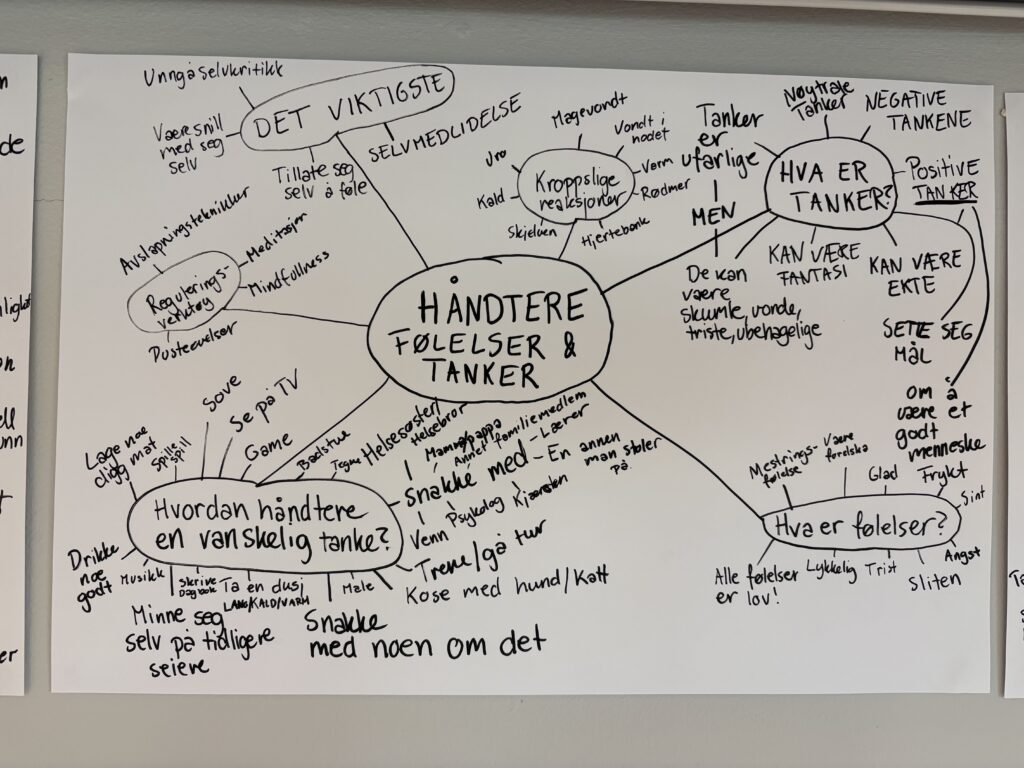 Unngå selvkritikk
DET VIKTIGSTE
Være snill
med seg
selv
Tillate seg
selv å føle
SELVMEDLIDELSE
Magevondt
Vondt i
hodet
Uro
Kroppslige
reaksjoner
Varm
Rødmer
Kald
Skjelven
Hjertebank
Tanker
er
ufarlige
MEN
De kan
være
skumle, vonde,
triste, ubehagelige
Nøytrale
Tanker
NEGATIVE
TANKENE
HVA ER
TANKER?
POSITIVE
TANKER
KAN VÆRE
FANTASI
KAN VÆRE
EKTE
SETTE SEG
MÅL
OM Å
være et
godt
menneske
Avslapningsteknikker
Meditasjon
Regulerings-
verktøy
Mindfullness
Pusteøvelser
HÅNDTERE
FØLELSER &
TANKER
Lage noe
digg mat
Spille
spill
Sove
Se på TV
Game
Badstue
Tegne
Helsesøster/
Helsebror
Hvordan håndtere
en vanskelig tanke?
Mamma/pappa
Annet familiemedlem
Snakke med
Lærer
En annen
man stoler
på
Venn
Psykolog
Kjæresten
Trene/gå tur
Kose med hund/katt
Drikke
noe
godt
Musikk
Skrive
Dagbok
Ta en dusj
LANG/KALD/VARM
Male
Minne seg
selv på tidligere
seiere
Snakke
med noen om det
Mestrings-
følelse
Være
forelska
Glad
Frykt
Sint
Hva er følelser?
Angst
Alle følelser
er lov!
Lykkelig
Trist
Sliten